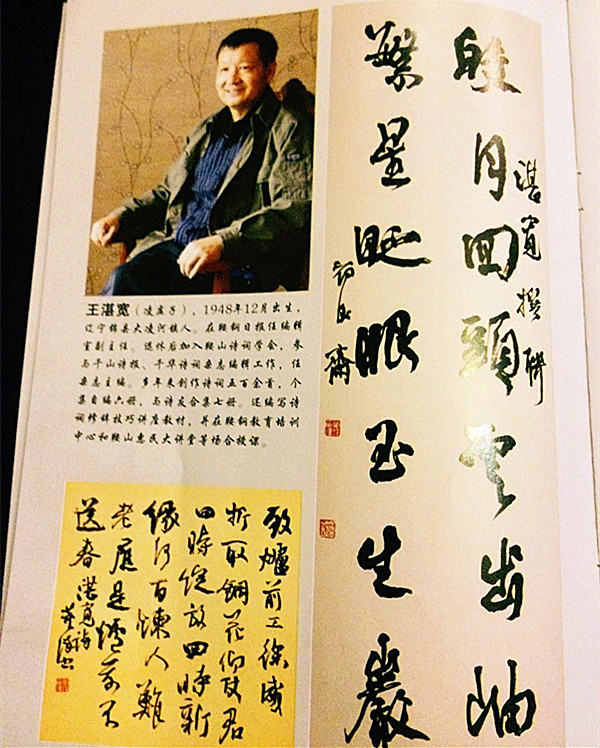 王湛宽(凌虚子),1948年12月出生,
辽宁锦县大凌河镇人。在鞍钢日报任编辑
室副主任。退休后加入鞍山诗词学会,参
与千山诗报、千华诗词杂志编辑工作,任
杂志主编。多年来创作诗词五百余首,个
集自编六册,与诗友合集七册。还编写诗
词修辞技巧讲座教材,并在鞍钢教育培训
中心和鞍山惠民大讲堂等场合授课。
湛寬撰聯
皎月回頭雲出岫
繁星眨眼玉生巖
致爐前工徐威
折取鋼花仰仗君
四時綻放四時新
緣何百煉人難
老應是爐前不
送春湛寬詩